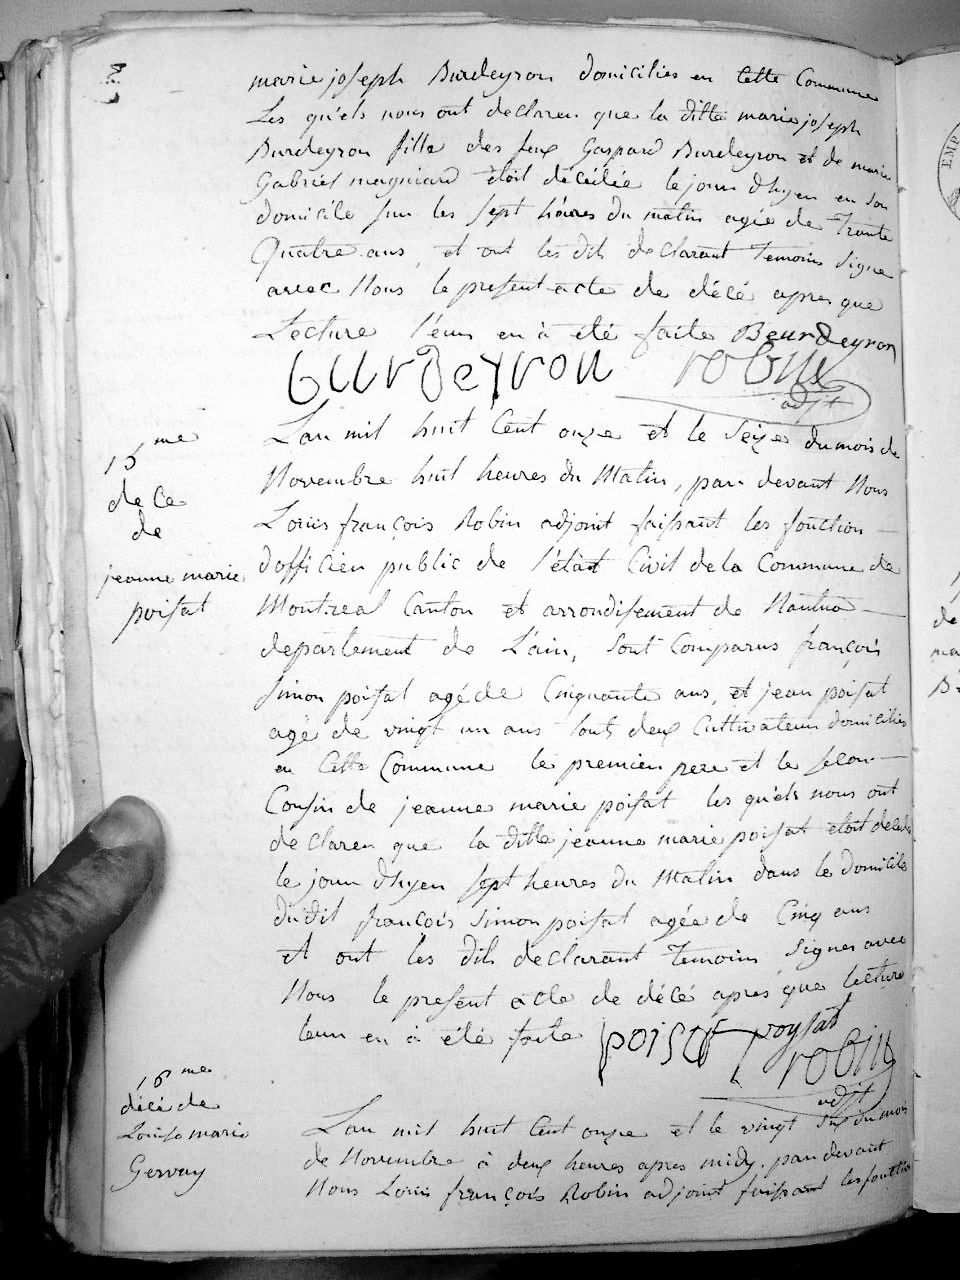 marie joseph Burdeyron domiciliés en Cette Commune
Les quèls nous ont declaren que la ditte marie joseph
Burdeyron fille des feux Gaspard Burdeyron et de marie
Gabriel magniard étoit décédée le jour d'hyer en son
domicile sur les sept héures du matin agée de Trante
Quatre ans, et ont les dits declarant Temoins signe
avec Nous le present acte de décé apres que
Lecture l'eur en à été faite Beurdeyron
burdeyron robin
adjt
15me
de Ce
de
jeanne marie
poisat
L'an mil huit Cent onze et le Seize du mois de
Novembre huit heures du Matin, par devant Nous
Louis françois Robin adjoint faisant les fonction
d'officien public de l'état Civil de la Commune de
Montreal Canton et arrondisement de Nantua
departement de L'ain, sont Comparus françois
simon poisat agé de Cinquante ans, et jean poisat
agé de vingt un ans touts deux Cultivateurs domiciliés
en Cette Commune le premier pere et le secon
Cousin de jeanne marie poisat les quèls nous ont
declaren que la ditte jeanne marie poisat étoit décédé
le jour d'hyer sept heures du Matin dans le domicile
dudit françois simon poisat agée de Cinq ans
et ont les dits declarant Temoins signes avec
Nous le present acte de décé apres que lecture
leur en à été faite poisat poysat
robin
adjt
16me
décé de
Louise marie
Gervay
L'an mil huit Cent onze et le vingt six du mois
de Novembre à deux heures apres midy. par devant
Nous Louis françois Robin adjoint faisant les fonction